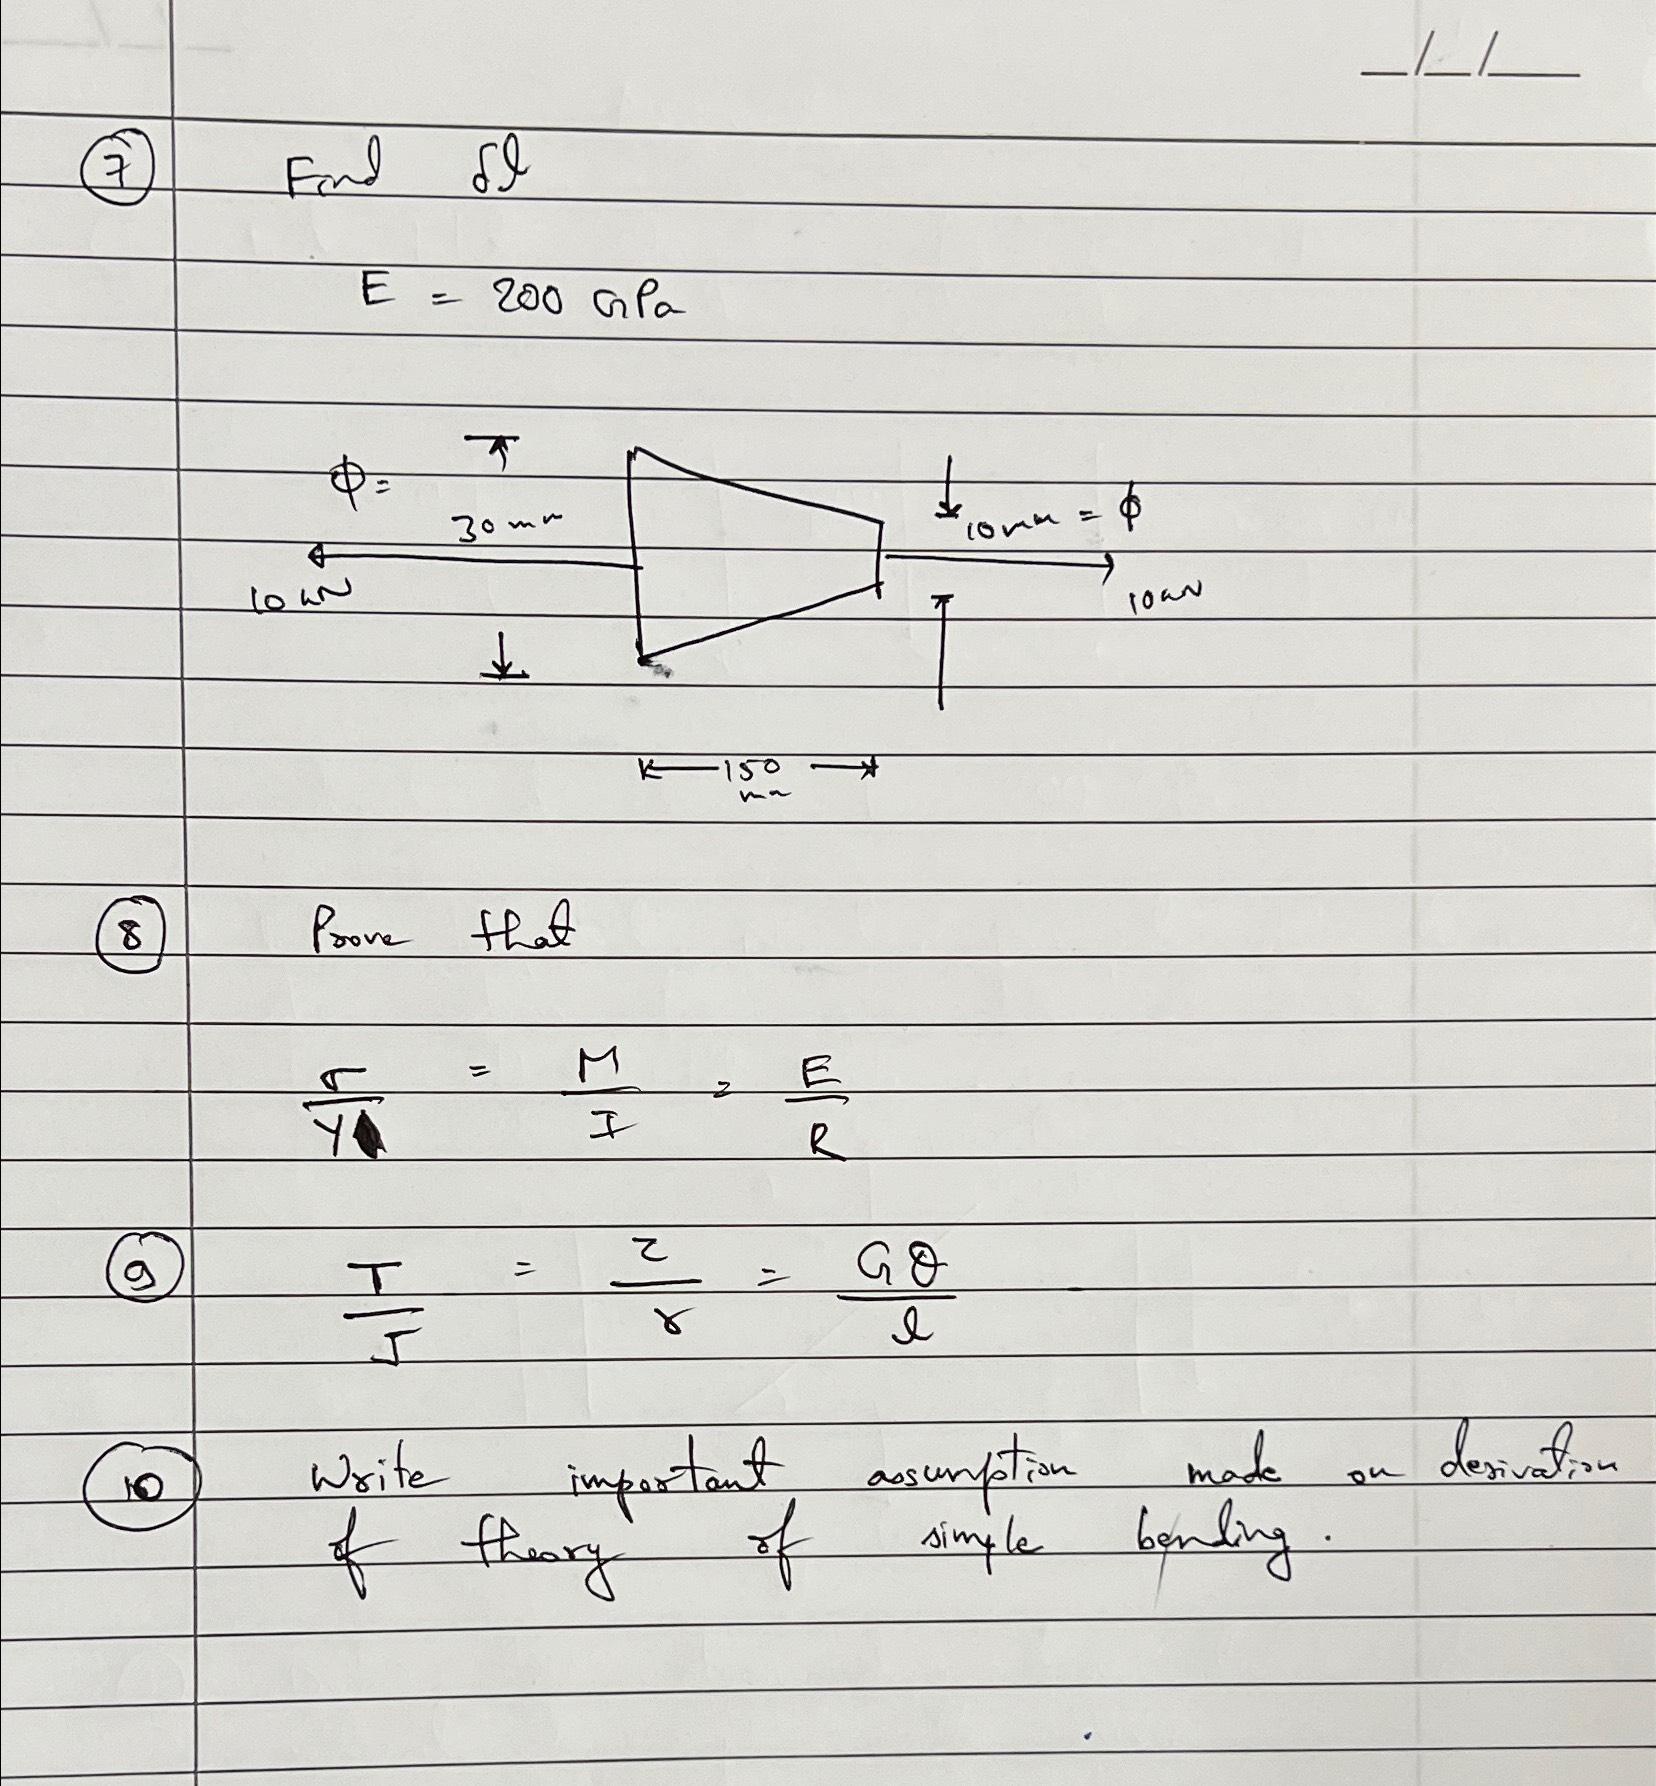 __/__/____
7 Find δl
E = 200 GPa
ϕ =
30 mm
10 mm = ϕ
10 kN
10 kN
150
mm
8 Prove that
σ/y = M/I = E/R
9 T/J = τ/r = Gθ/l
10 Write important assumption made on derivation
of theory of simple bending.